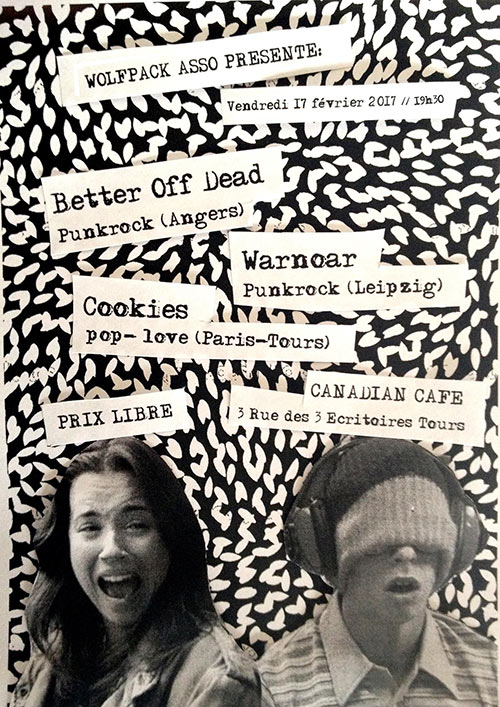 WOLFPACK ASSO PRESENTE:
Vendredi 17 février 2017 // 19h30
Better Off Dead
Punkrock (Angers)
Warnoar
Punkrock (Leipzig)
Cookies
pop-love (Paris-Tours)
CANADIAN CAFE
PRIX LIBRE
3 Rue des 3 Ecritoires Tours